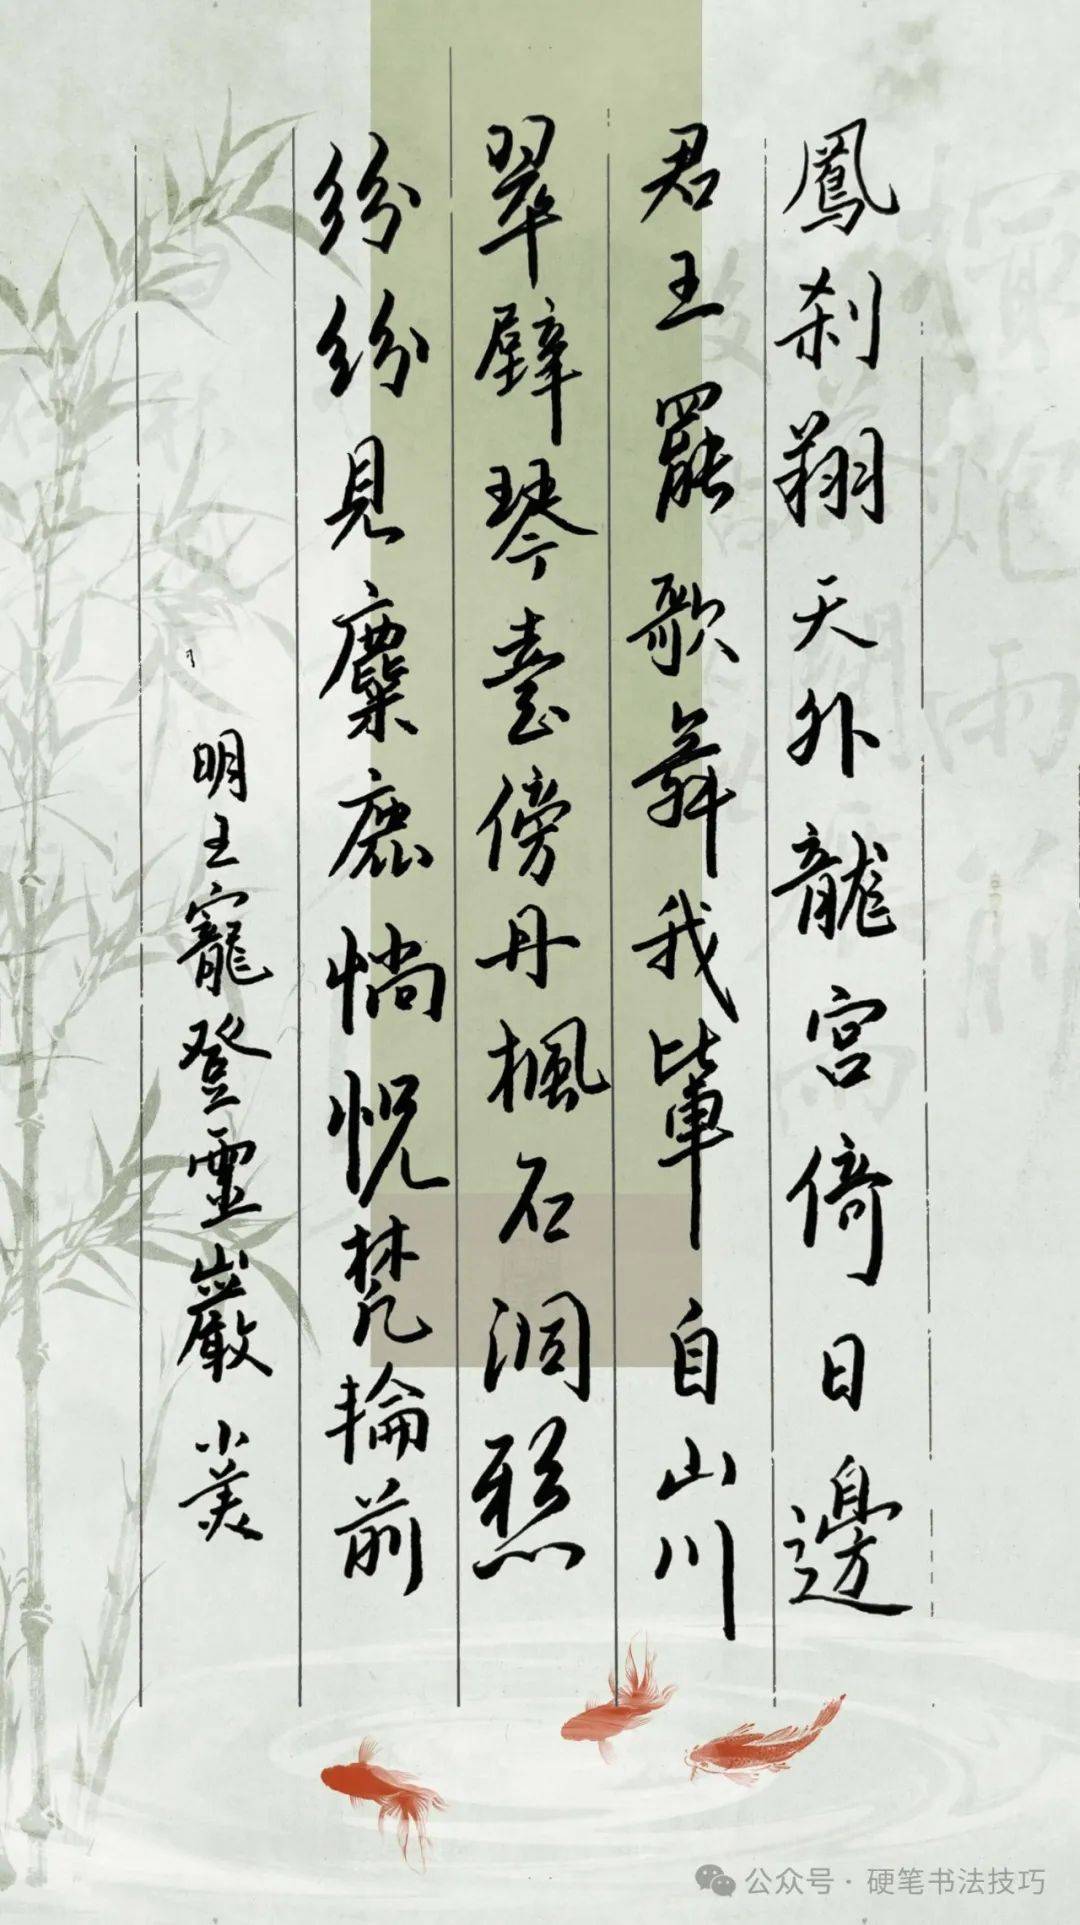 鳳刹翔天外龍宮倚日邊
君王罷歌舞我輩自山川
翠壁琴臺傍丹楓石洞懸
紛紛見麋鹿惝怳梵輪前
明王寵登靈巖 小美
公众号·硬笔书法技巧